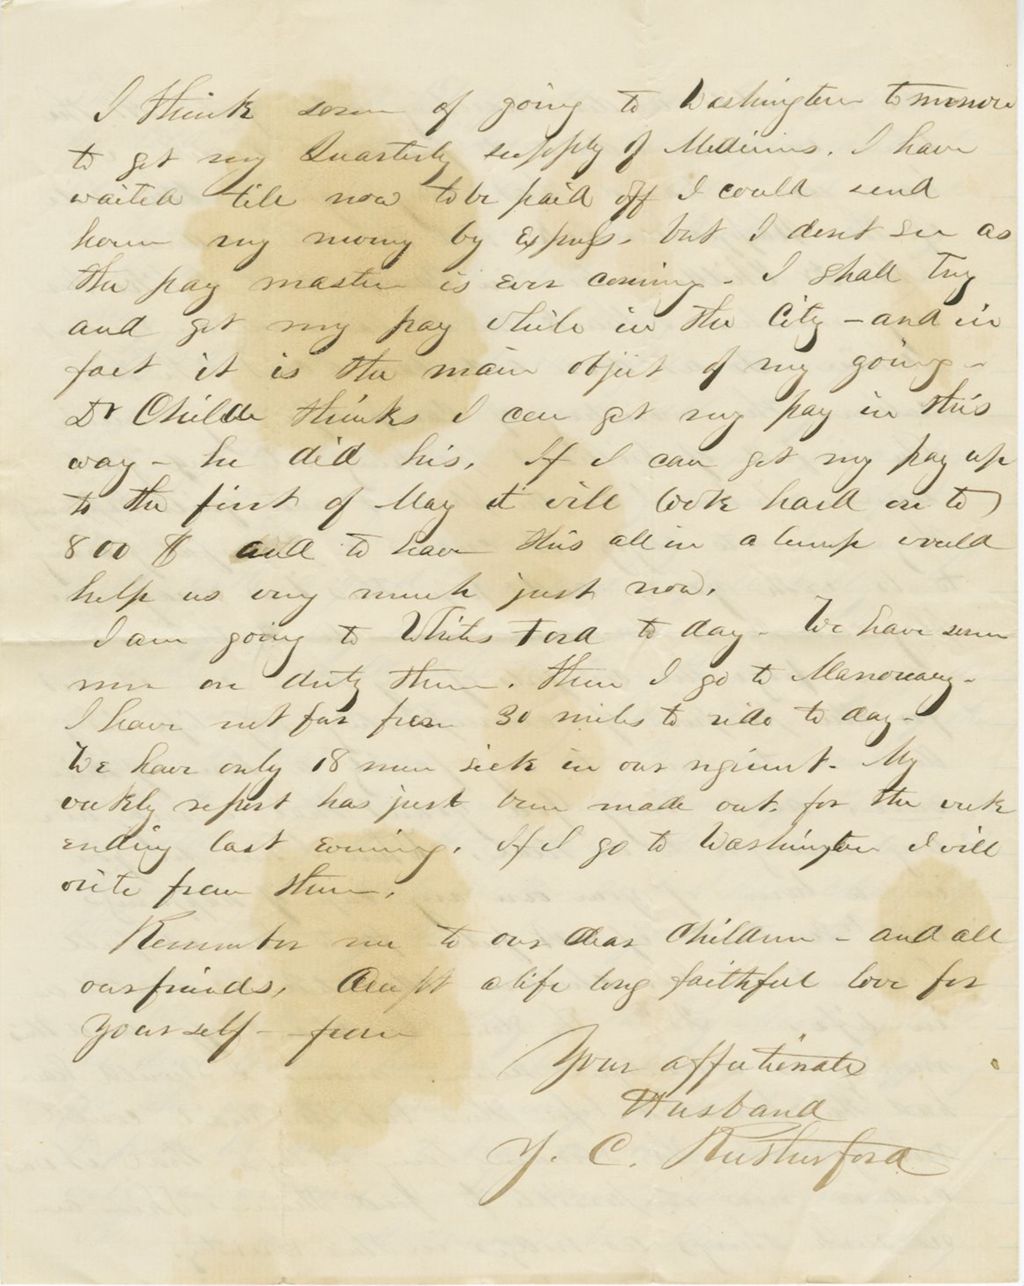 I think som of going to Washington tomorrow
to get my Quarterly supply of Medicines. I have
waited till now to be paid off I could send
hom my money by Express. but I dont see as
the pay master is ever coming - I shall try
and get my pay while in the City - and in
fact it is the main object of my going -
Dr Childe thinks I can get my pay in this
way - he did his. If I can get my pay up
to the first of May it will look hard on to
800 $ and to have this all in a lump would
help us very much just now.
I am going to Whites Ford to day - We have som
men on duty there. then I go to Monocacy -
I have not far from 30 miles to ride to day -
We have only 18 men sick in our regiment. My
weekly report has just been made out for the week
ending last evening. If I go to Washington I will
write from there.
Remember me to our dear Children - and all
our friends, Accept a life long faithful love for
yourself - from
Your affectionate
Husband
J. C. Rutherford